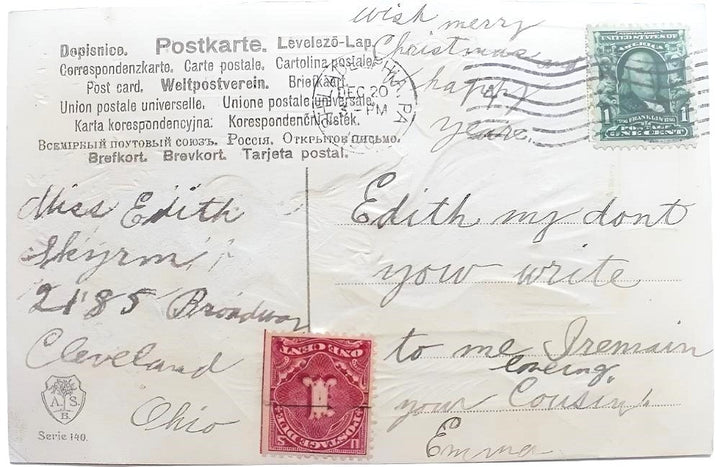 wish merry
Christmas
happy
year.
Dopisnice. Postkarte. Levelező-Lap.
Correspondenzkarte. Carte postale. Cartolina postale.
Post card. Weltpostverein. Briefkaart.
Union postale universelle. Unione postale universale.
Karta korespondencyjna. Korespondenční lístek.
Всемірный почтовый союзъ. Россія. Открытое письмо.
Brefkort. Brevkort. Tarjeta postal.
DEC 20
3 - PM
PA
UNITED STATES OF
1 1
FRANKLIN
POSTAGE
ONE CENT
Miss Edith
Skyrm
2185 Broadway
Cleveland
Ohio
Edith my dont
yow write
to me I remain
loveing
your Cousin
Emma
ONE CENT
1
POSTAGE DUE
U S
A. S.
B.
Serie 140.